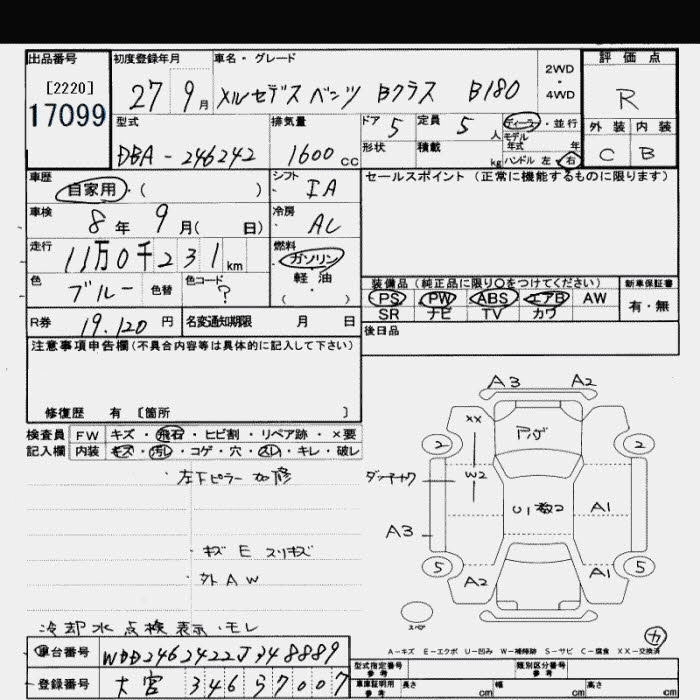 出品番号 初度登録年月 車名・グレード 評価点
[2220] 27 9月 メルセデス ベンツ Bクラス B180 2WD・4WD R
17099
型式 排気量 ドア 5 定員 5 人 ディーラー・並行 外装 内装
DBA-246242 1600cc 形状 積載 kg モデル年式 年 ハンドル 左・右 C B
車歴 自家用・( ) シフト IA セールスポイント (正常に機能するものに限ります)
車検 8年 9月( 日) 冷房 AC
走行 11万0千231km 燃料 ガソリン 軽油 ( ・ )
色 ブルー 色替 色コード ? 装備品 (純正品に限り○をつけてください) 新車保証書
PS PW ABS エアB AW 有・無
SR ナビ TV カワ
R券 19.120 円 名変通知期限 月 日 後日品
注意事項申告欄(不具合内容等は具体的に記入して下さい)
修復歴 有 [箇所 ]
検査員 FW キズ・飛石・ヒビ割・リペア跡・×要
記入欄 内装 キズ・汚レ・コゲ・穴・スレ・キレ・破レ
左下ピラー 加修
・キズ E スリキズ
・外AW
冷却水点検表示・モレ
A3 A2
XX
2 2
W2
A3 A1
5 5
A2 A1
スペア
カ
A-キズ E-エクボ U-凹み W-補修跡 S-サビ C-腐食 XX-交換済
車台番号 WDD2462422J348889 型式指定番号 参考 類別区分番号 参考
登録番号 大宮 346 7007 車庫証明用 参考 長さ cm 幅 cm 高さ cm